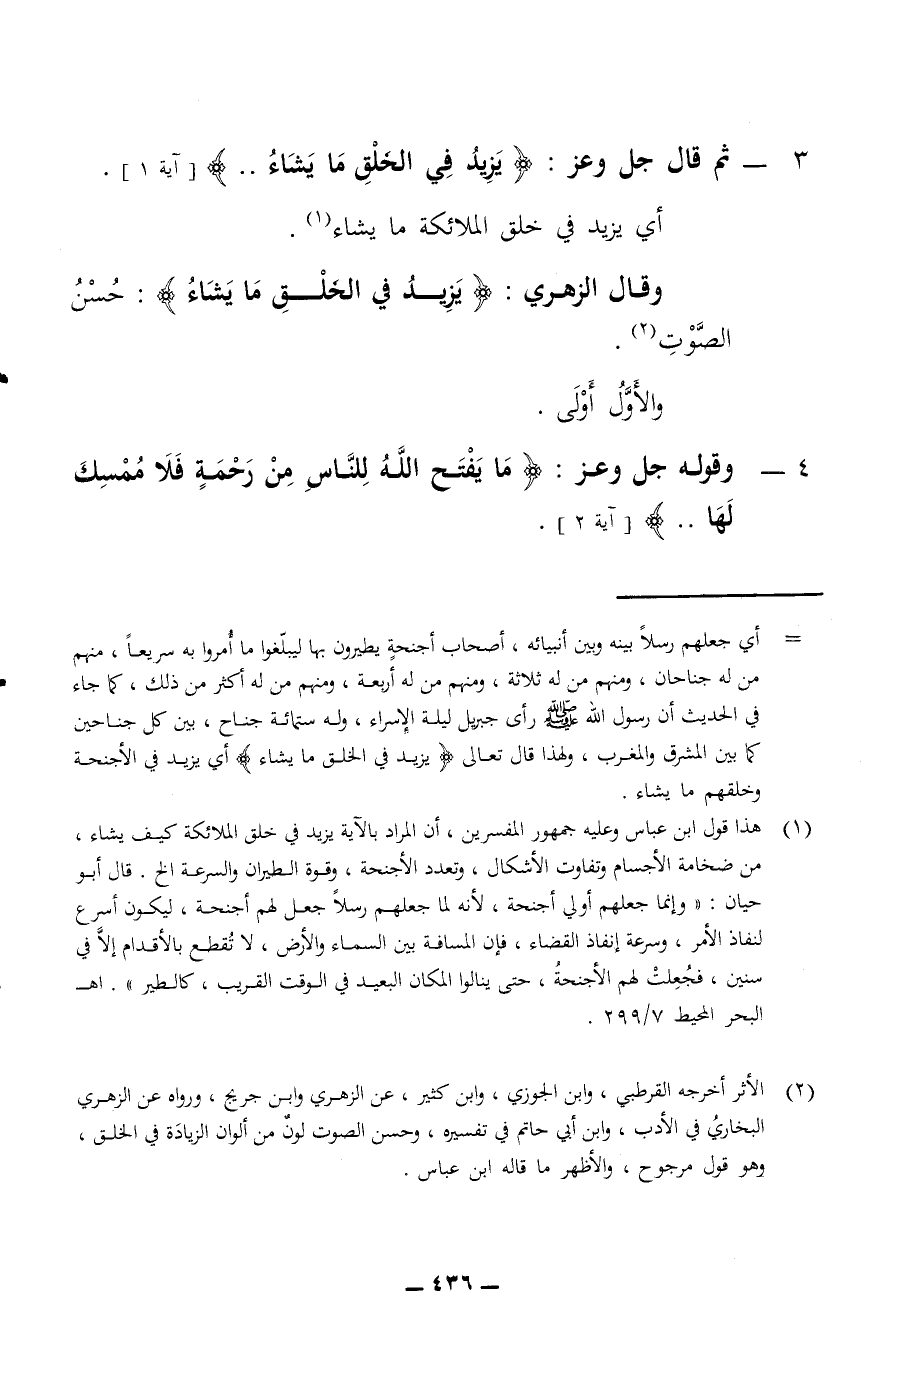 ٣ ــ ثم قال جل وعز : ﴿ يَزِيدُ فِي الخَلْقِ مَا يَشَاءُ .. ﴾ [ آية ١ ] .
أي يزيد في خلق الملائكة ما يشاء(١) .
وقال الزهري : ﴿ يَزِيدُ في الخَلْقِ مَا يَشَاءُ ﴾ : حُسْنُ
الصَّوْتِ(٢) .
والأَوَّلُ أَوْلَى .
٤ ــ وقوله جل وعز : ﴿ مَا يَفْتَحِ اللَّهُ لِلنَّاسِ مِنْ رَحْمَةٍ فَلَا مُمْسِكَ
لَهَا .. ﴾ [ آية ٢ ] .
= أي جعلهم رسلاً بينه وبين أنبيائه ، أصحاب أجنحةٍ يطيرون بها ليبلّغوا ما أُمروا به سريعاً ، منهم
من له جناحان ، ومنهم من له ثلاثة ، ومنهم من له أربعة ، ومنهم من له أكثر من ذلك ، كما جاء
في الحديث أن رسول الله ﷺ رأى جبريل ليلة الإسراء ، وله ستمائة جناح ، بين كل جناحين
كما بين المشرق والمغرب ، ولهذا قال تعالى ﴿ يزيد في الخلق ما يشاء ﴾ أي يزيد في الأجنحة
وخلقهم ما يشاء .
(١) هذا قول ابن عباس وعليه جمهور المفسرين ، أن المراد بالآية يزيد في خلق الملائكة كيف يشاء ،
من ضخامة الأجسام وتفاوت الأشكال ، وتعدد الأجنحة ، وقوة الطيران والسرعة الخ . قال أبو
حيان : « وإنما جعلهم أولي أجنحة ، لأنه لما جعلهم رسلاً جعل لهم أجنحة ، ليكون أسرع
لنفاذ الأمر ، وسرعة إنفاذ القضاء ، فإن المسافة بين السماء والأرض ، لا تُقطع بالأقدام إلاَّ في
سنين ، فجُعِلتْ لهم الأجنحةُ ، حتى ينالوا المكان البعيد في الوقت القريب ، كالطير » . اهـ
البحر المحيط ٢٩٩/٧ .
(٢) الأثر أخرجه القرطبي ، وابن الجوزي ، وابن كثير ، عن الزهري وابن جريج ، ورواه عن الزهري
البخاريُ في الأدب ، وابن أبي حاتم في تفسيره ، وحسن الصوت لونٌ من ألوان الزيادَة في الخلق ،
وهو قول مرجوح ، والأظهر ما قاله ابن عباس .
ــ ٤٣٦ ــ